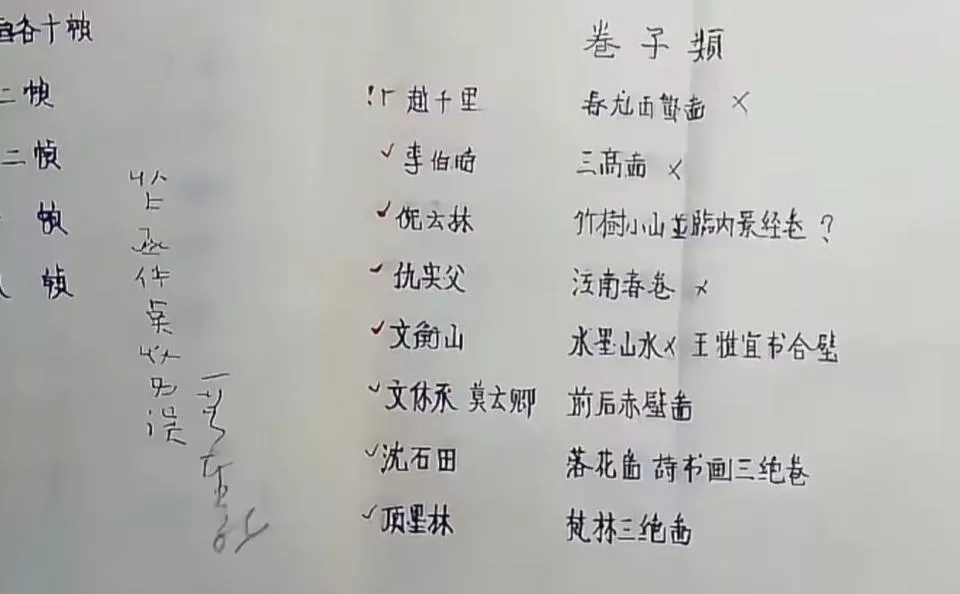 各十帧
二帧
二帧
帧
帧
卷子類
趙千里 春龙面蟄啚 ×
✓ 李伯时 三高啚 ×
✓ 倪云林 竹樹小山並臨内景经卷 ?
✓ 仇实父 江南春卷 ×
✓ 文衡山 水墨山水× 王雅宜书合壁
✓ 文休承 莫云卿 前后赤壁啚
✓ 沈石田 落花啚 詩书画三绝卷
✓ 项墨林 梵林三绝啚